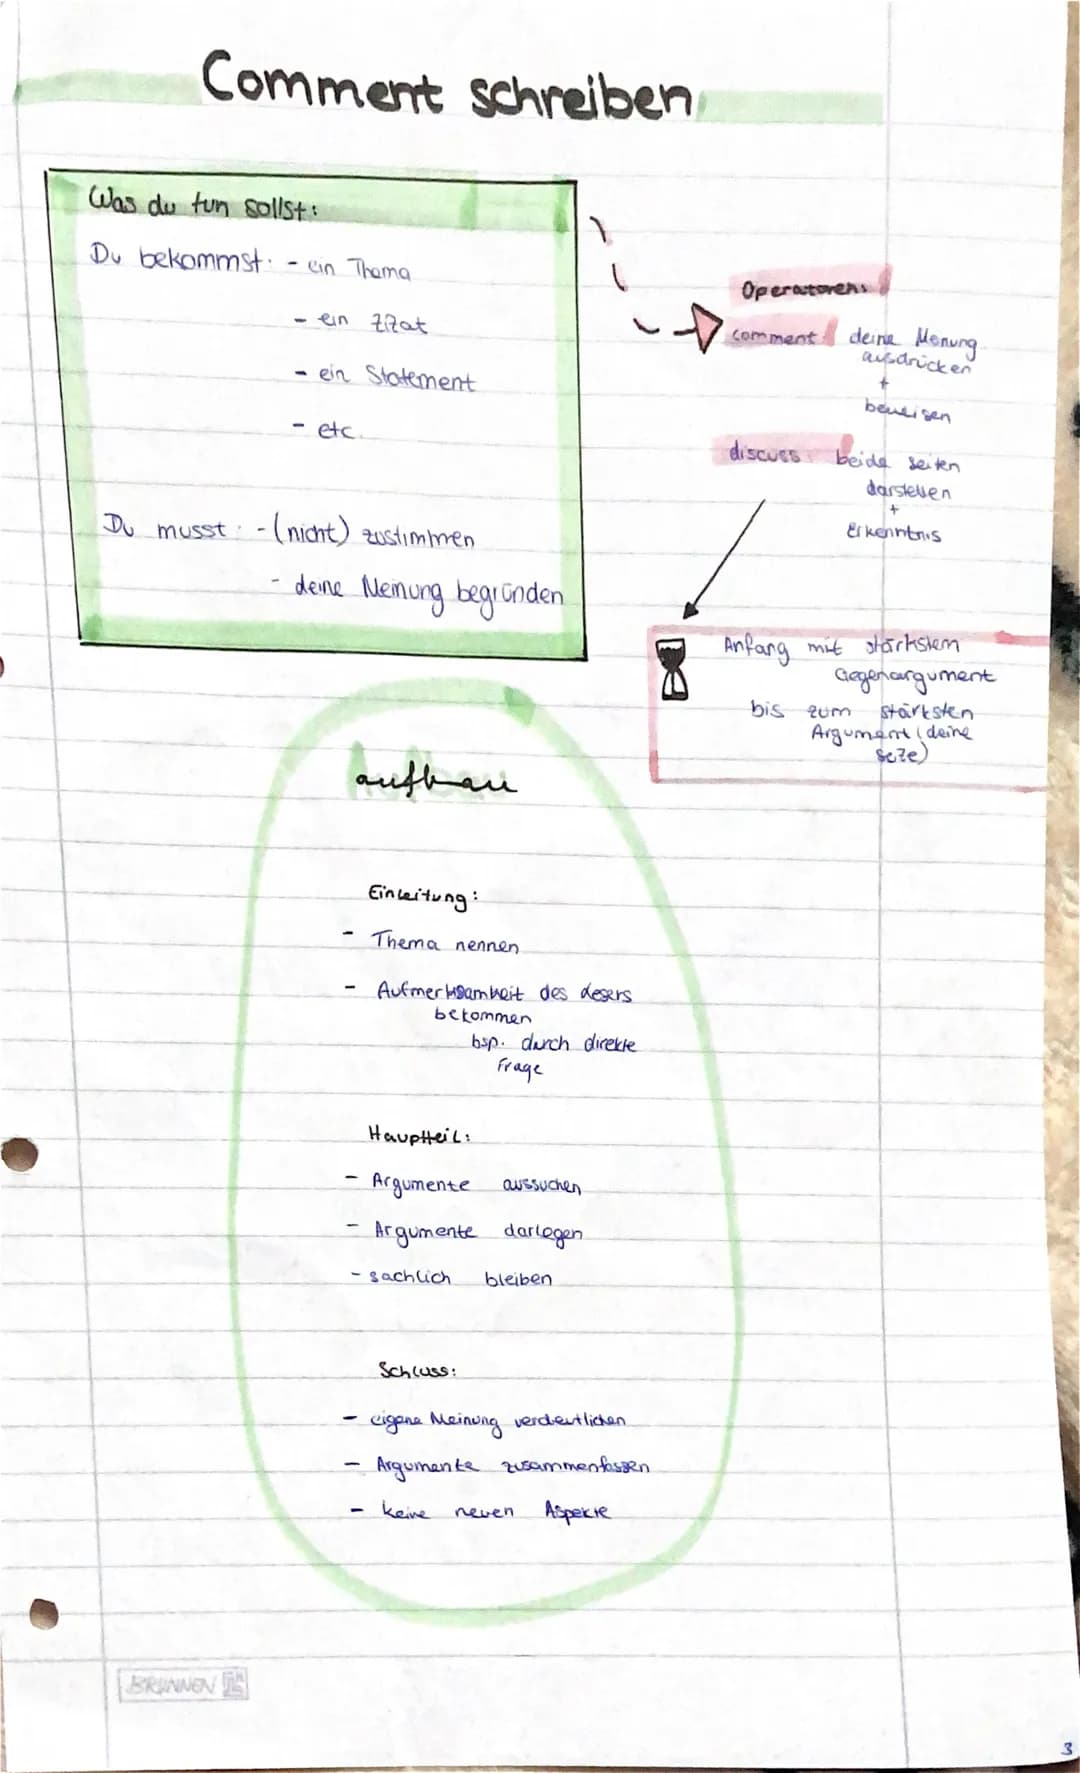 Comment schreiben
Was du tun sollst:
Du bekommst: - ein Thema
- ein Zitat
- ein Statement
- etc.
Du musst: - (nicht) zustimmen
- deine Meinung begründen
Operatoren:
comment: deine Meinung
ausdrücken
+
beweisen
discuss: beide seiten
darstellen
+
Erkenntnis
Anfang mit stärkstem
Gegenargument
bis zum stärksten
Argument (deine
Seite)
aufbau
Einleitung:
- Thema nennen
- Aufmerksamkeit des Lesers
bekommen
bsp. durch direkte
Frage
Hauptteil:
- Argumente aussuchen
- Argumente darlegen
- sachlich bleiben
Schluss:
- eigene Meinung verdeutlichen
- Argumente zusammenfassen
- keine neuen Aspekte
BRUNNEN
3